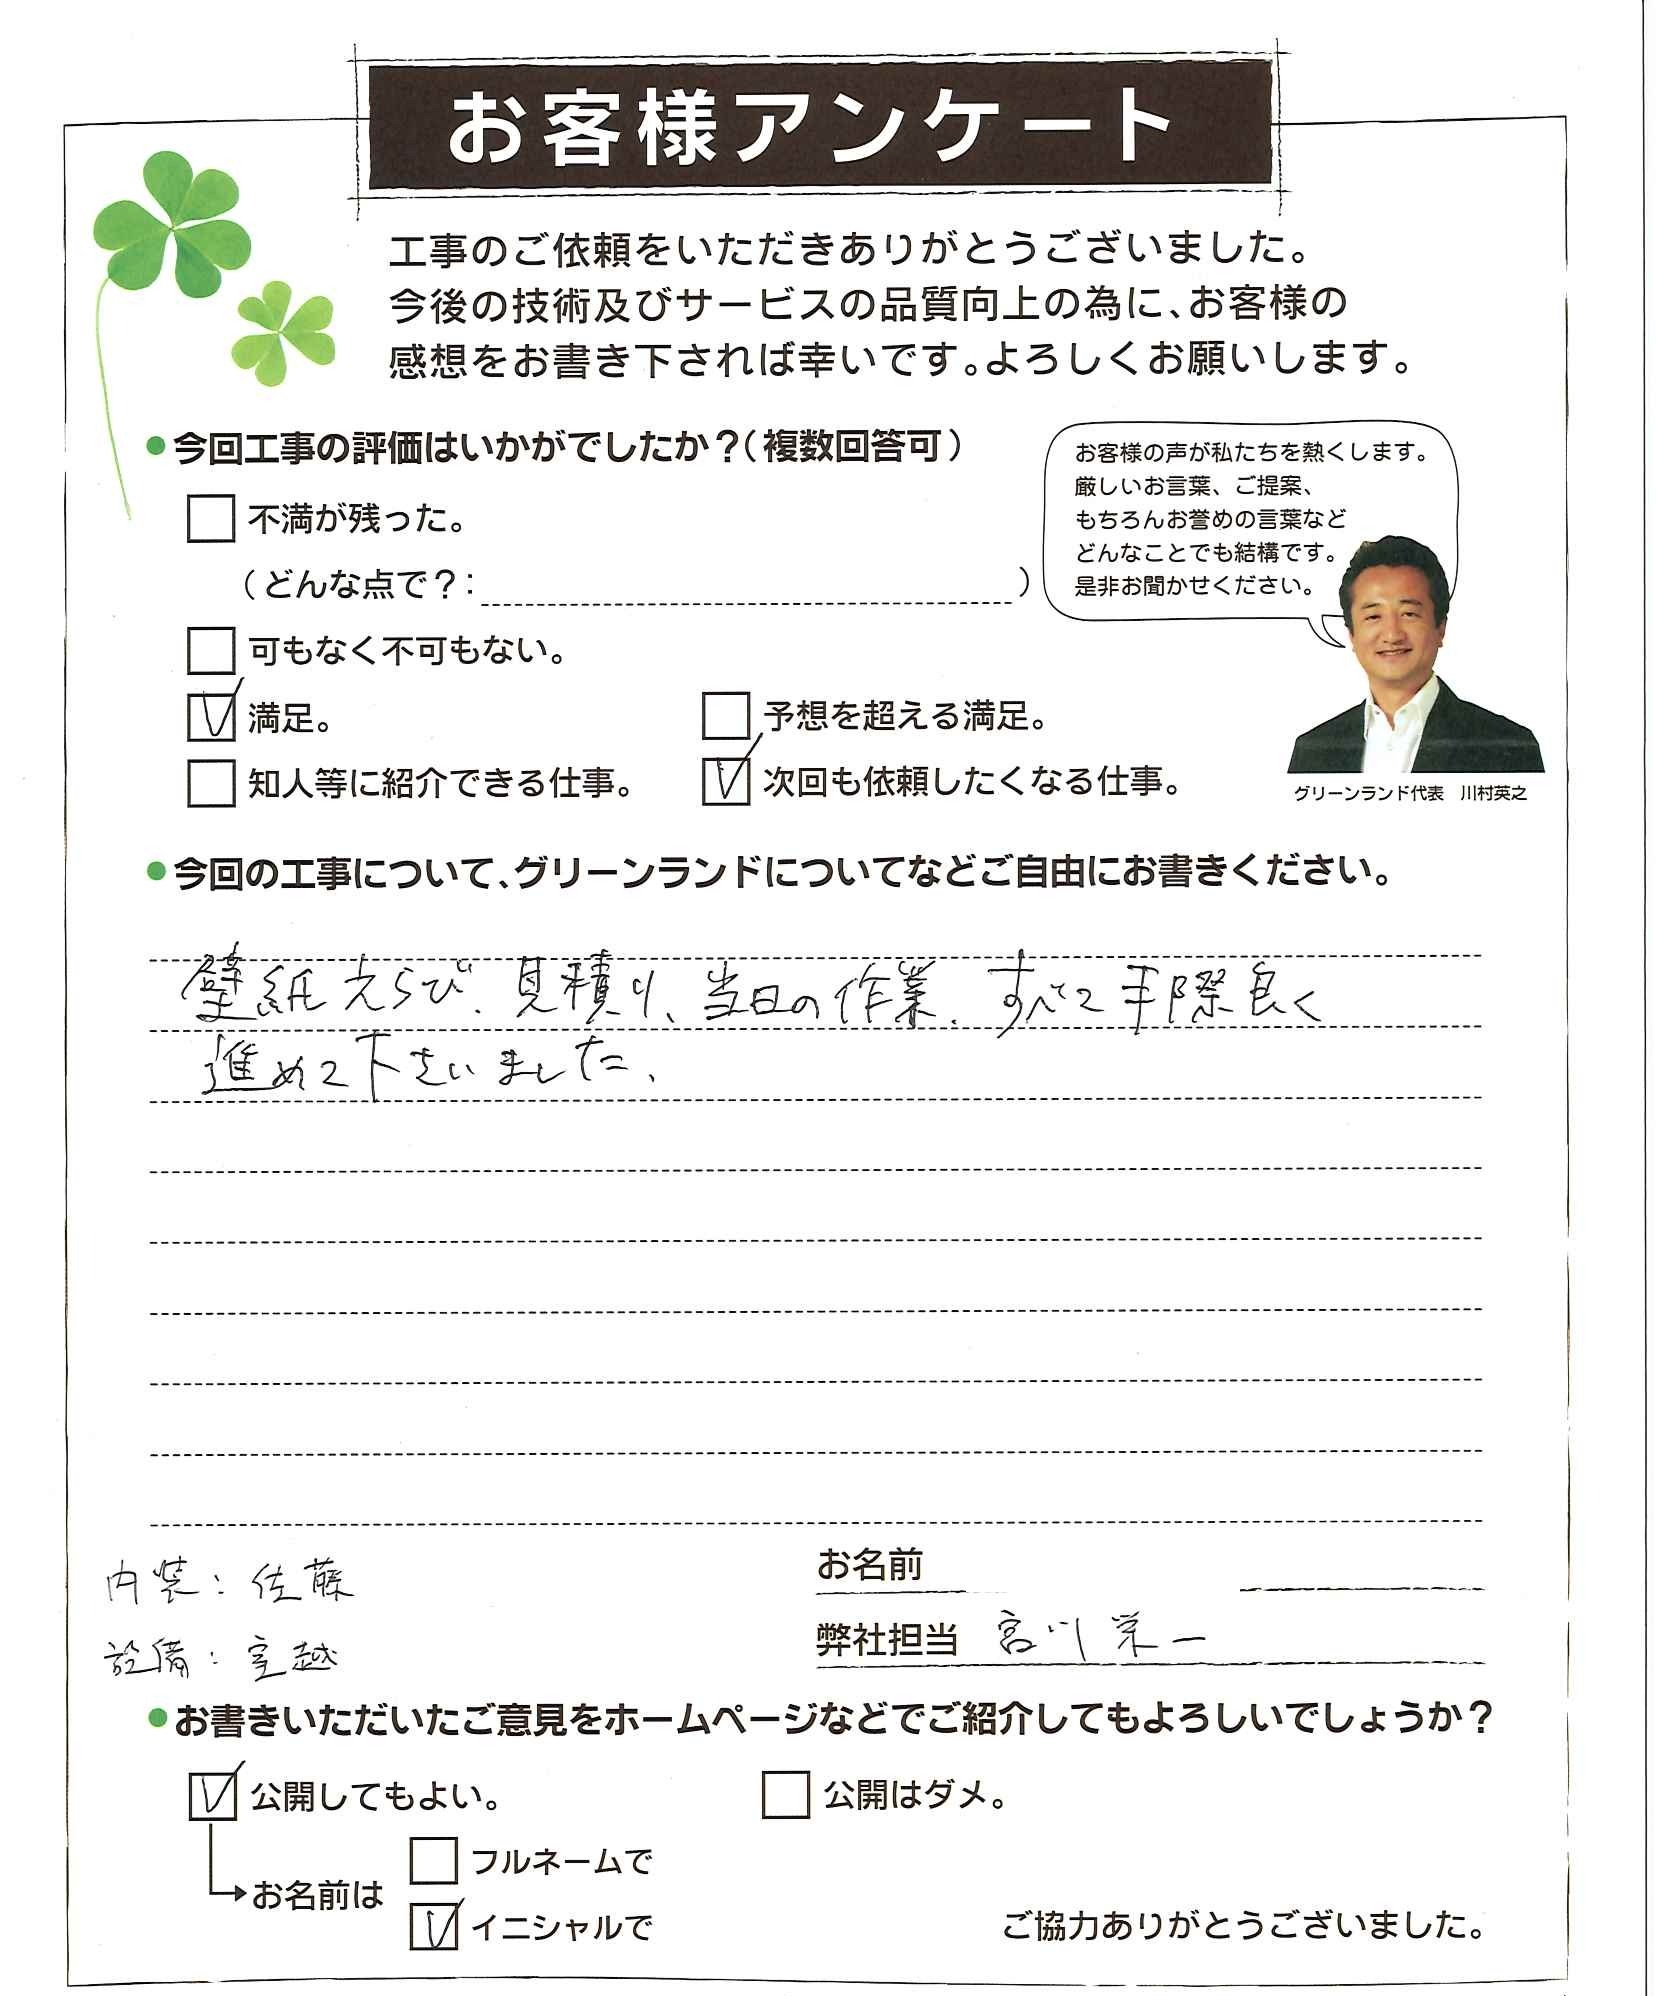 お客様アンケート
工事のご依頼をいただきありがとうございました。
今後の技術及びサービスの品質向上の為に、お客様の
感想をお書き下されば幸いです。よろしくお願いします。
●今回工事の評価はいかがでしたか？（複数回答可）
不満が残った。
（どんな点で？：　　　　）
可もなく不可もない。
満足。
予想を超える満足。
知人等に紹介できる仕事。
次回も依頼したくなる仕事。
お客様の声が私たちを熱くします。
厳しいお言葉、ご提案、
もちろんお誉めの言葉など
どんなことでも結構です。
是非お聞かせください。
グリーンランド代表　川村英之
●今回の工事について、グリーンランドについてなどご自由にお書きください。
壁紙えらび、見積り、当日の作業、すべて手際良く
進めて下さいました、
内装：佐藤
設備：室越
お名前
弊社担当 宮川栄一
●お書きいただいたご意見をホームページなどでご紹介してもよろしいでしょうか？
公開してもよい。
公開はダメ。
お名前は
フルネームで
イニシャルで
ご協力ありがとうございました。